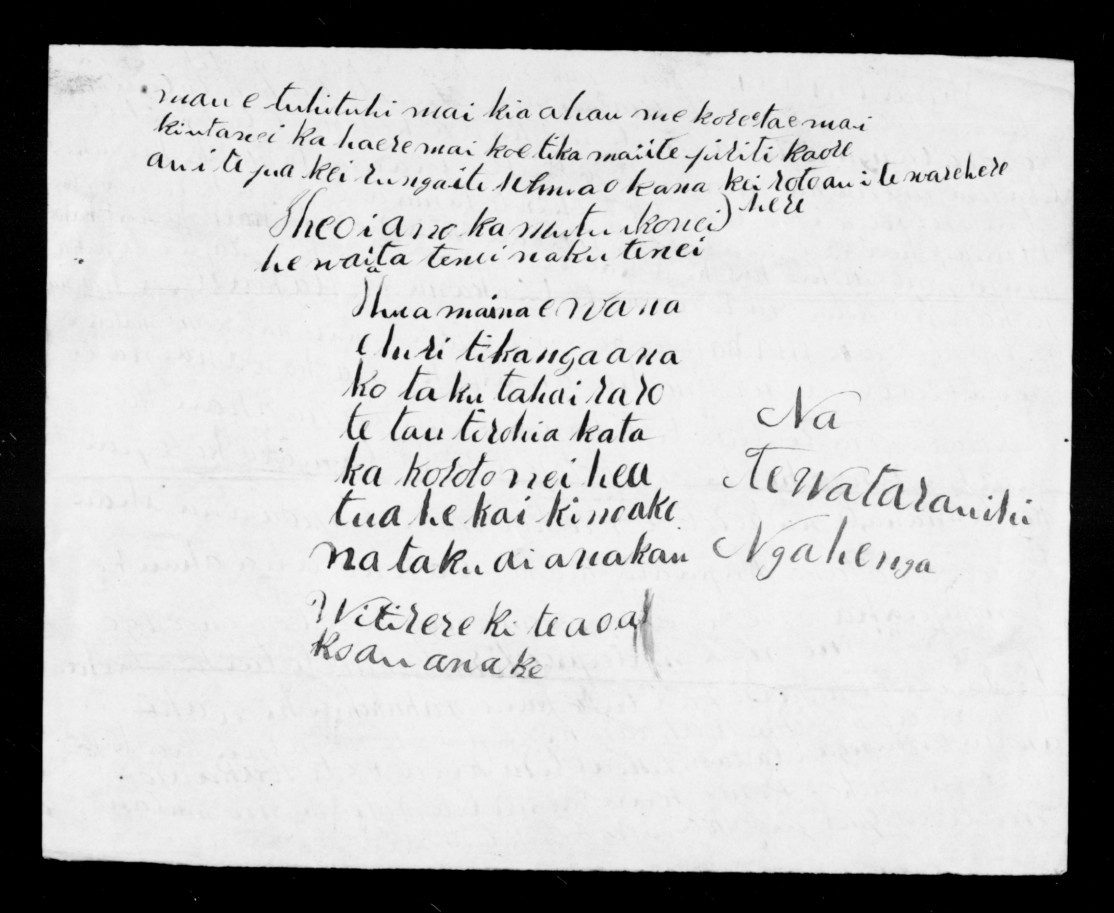 mau e tuhituhi mai kia ahau me kore e tae mai
kiutanei ka haere mai koe tika mai i te piriti kaore
au i te pa kei runga i te o kana kei roto au i te warehere
here
Heoi ano ka mutu ikonei
he waiata tenei naku tenei
Huia maina e wana
e huri tikanga ana
ko taku taha i raro
te tau tirohia kata
ka koroto nei hea
tua he kai kineake
na taku ai anakau
Witirere ki te aoa
ko au anake
Na
te Wataraukihi
Ngahenga